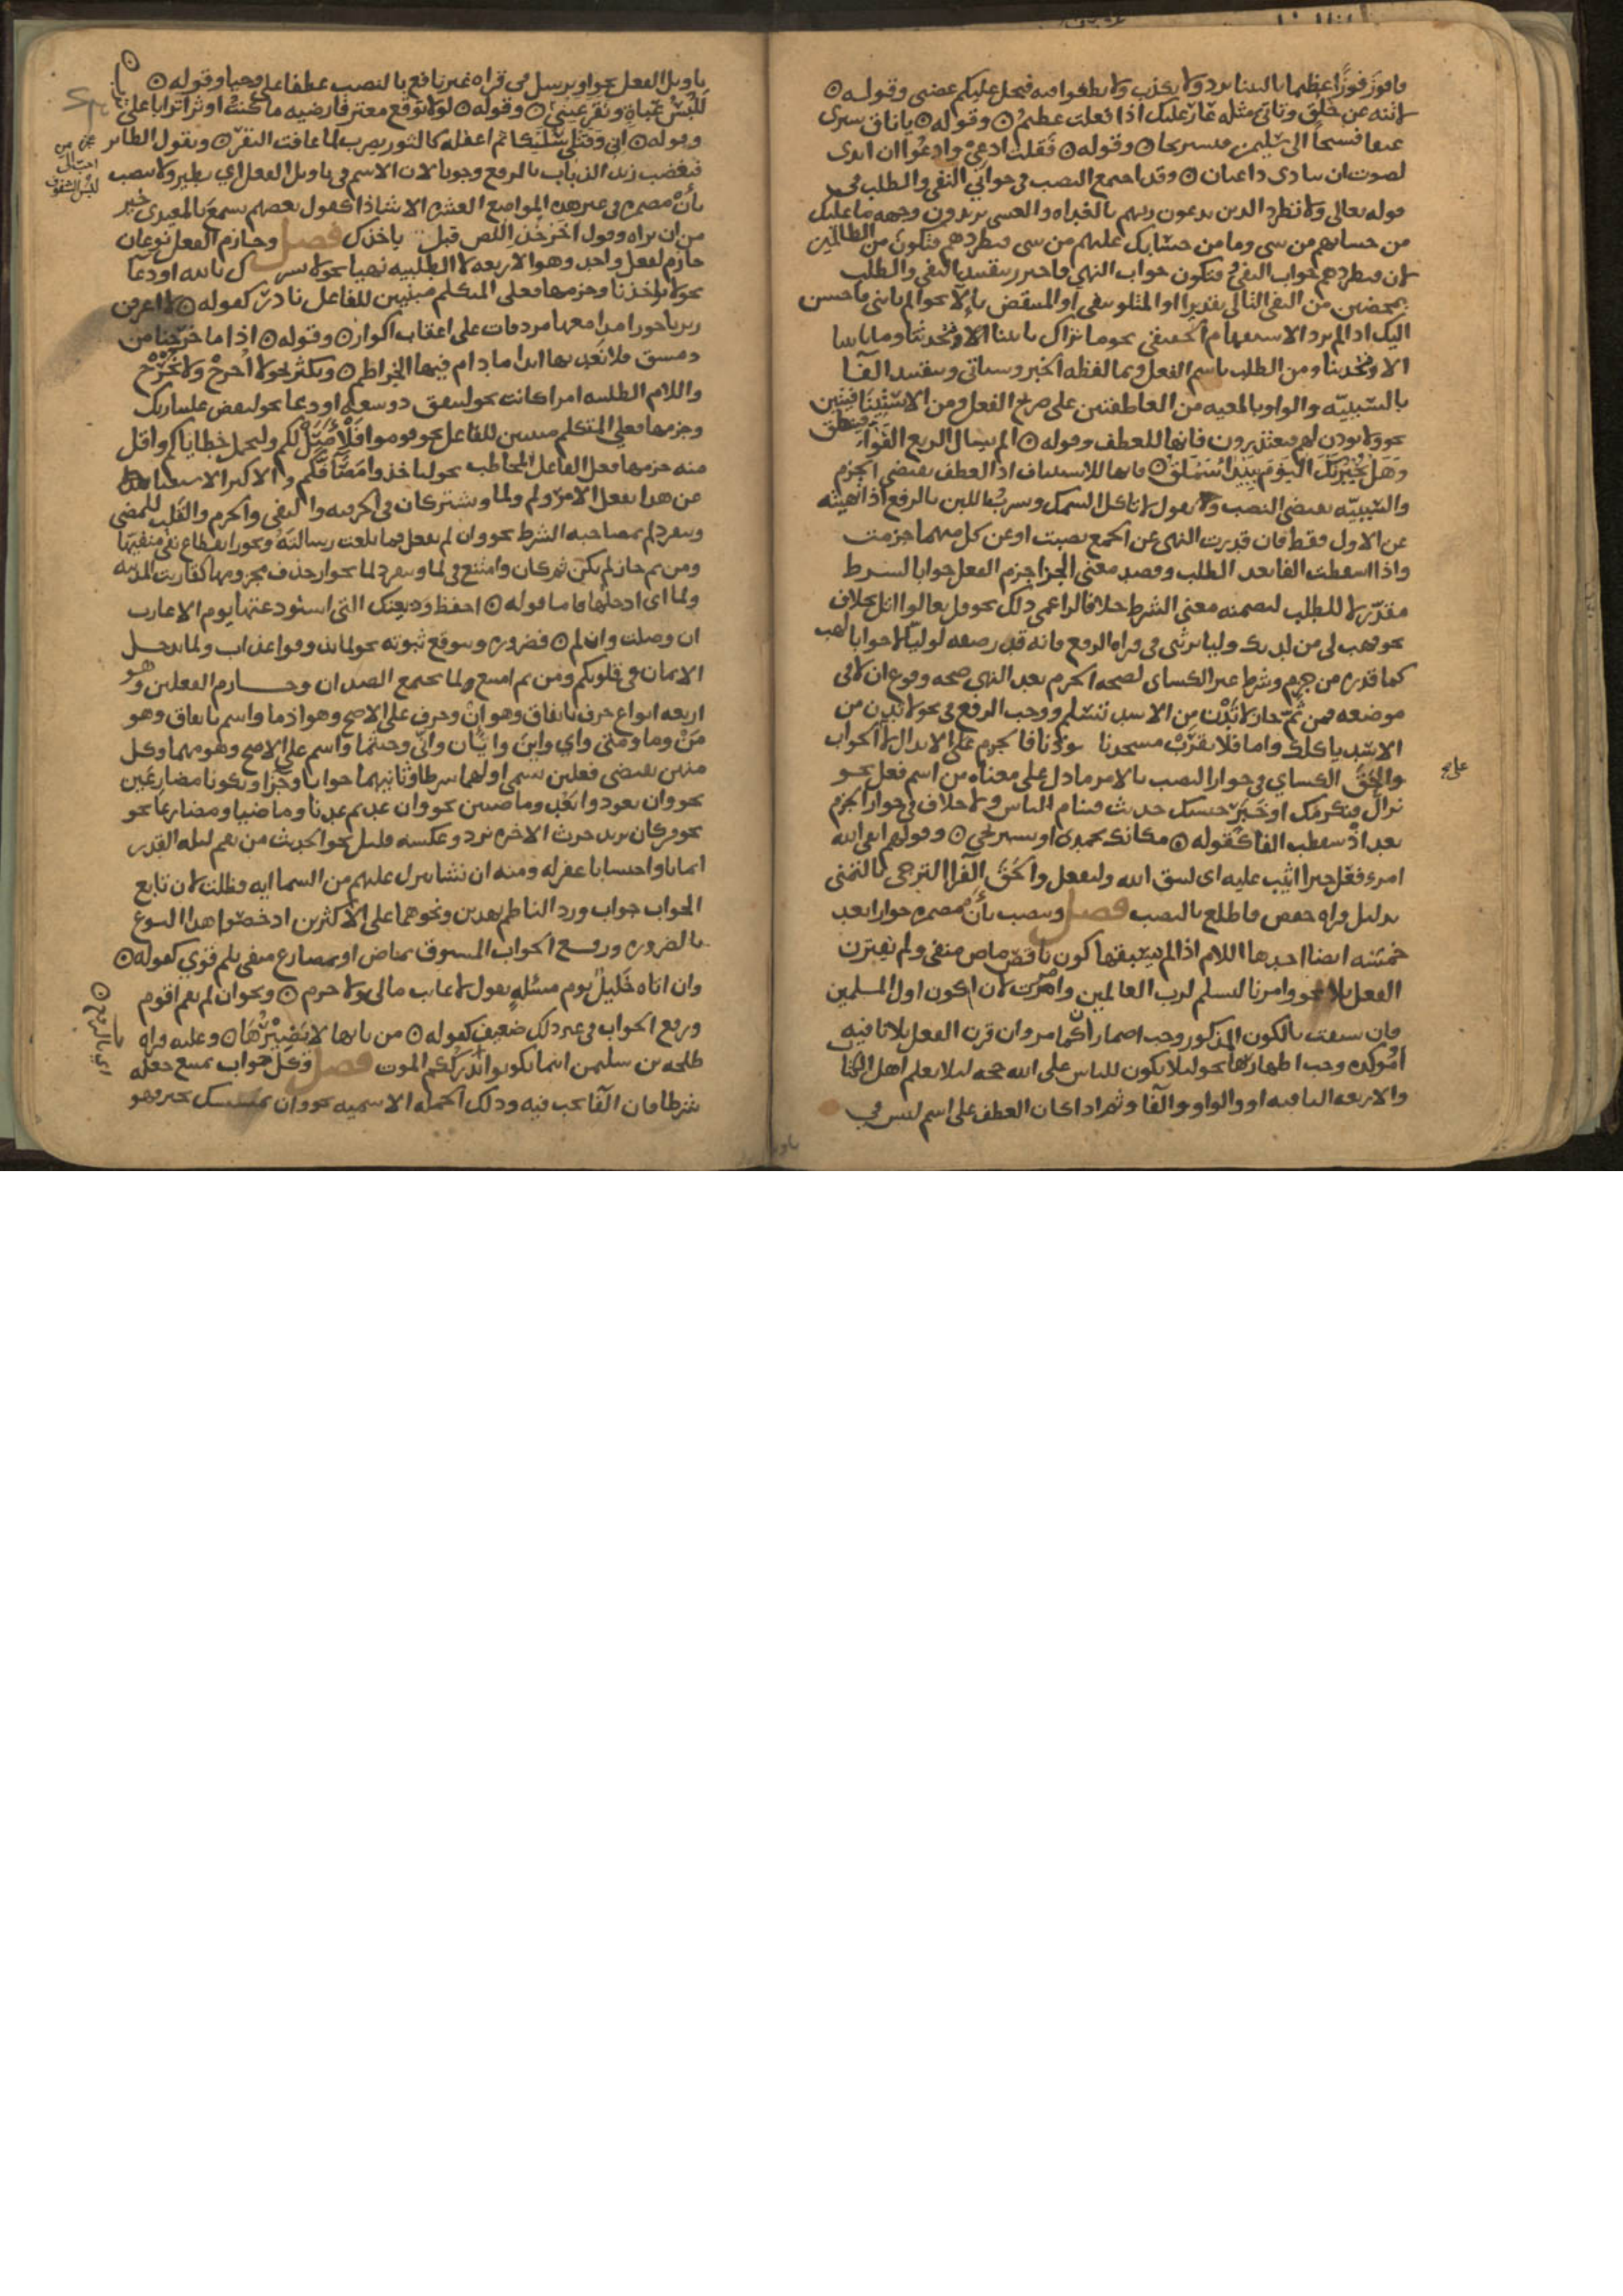 فافوز فوزا عظيما يا ليتنا نرد ولا نكذب ولا تطغوا فيه فيحل عليكم غضبي وقوله
لا تنه عن خلق وتاتي مثله عار عليك اذا فعلت عظيم وقوله يا ناق سيري
عنقا فسيحا الى سليمن فنستريحا وقوله فقلت ادعي وادعوا ان اندى
لصوت ان ينادي داعيان وقد اجتمع النصب في جوابي النفي والطلب في
قوله تعالى ولا تطرد الذين يدعون ربهم بالغداه والعشي يريدون وجهه ما عليك
من حسابهم من شي وما من حسابك عليهم من شي فتطردهم فتكون من الظالمين
لان فتطردهم جواب النفي وفتكون جواب النهي واحترز بتقييد النفي والطلب
بمحضين من النفي التالي تقديرا او المتلو بنفي او المنتقض بالا نحو الم تاتني فاحسن
اليك اذا لم يرد الاستفهام الحقيقي نحو ما تزال تاتينا الا وتحدثنا وما تاتينا
الا وتحدثنا ومن الطلب باسم الفعل وبما لفظه الخبر وسياتي وبتقييد الفا
بالسببيه والواو بالمعيه من العاطفتين على صريح الفعل ومن الاستئنافيتين
نحو ولا يوذن لهم فيعتذرون فانها للعطف وقوله الم تسال الربع القواء فينطق
وهل يخبرنك اليوم بيداء سملق فانها للاستئناف اذ العطف يقتضي الجزم
والسببيه تقتضي النصب وتقول لا تاكل السمك وتشرب اللبن بالرفع اذا نهيته
عن الاول فقط فان قدرت النهي عن الجمع نصبت او عن كل منهما جزمت
واذا اسقطت الفا بعد الطلب وقصد معنى الجزا جزم الفعل جوابا لشرط
مقدر لا للطلب لتضمنه معنى الشرط خلافا لزاعمي ذلك نحو قل تعالوا اتل بخلاف
نحو فهب لي من لدنك وليا يرثني في قراه الرفع فانه قدره صفه لوليا لا جوابا لهب
كما قدره من جزم وشرط غير الكساي لصحه الجزم بعد النهي صحه وقوع ان لا في
موضعه فمن ثم جاز لا تدن من الاسد تسلم ووجب الرفع في نحو لا تدن من
الاسد ياكلك واما فلا يقرب مسجدنا يوذنا فالجزم على الابدال لا الجواب
والحق الكساي في جواز النصب بالامر ما دل على معناه من اسم فعل نحو
نزال فنكرمك او خبر نحو حسبك حديث فينام الناس ولا خلاف في جواز الجزم
بعد اذ سقطت الفا كقوله مكانك تحمدي او تستريحي وقولهم اتقى الله
امرء فعل خيرا اثيب عليه اي ليتق الله وليفعل والحق الفرا الترجي بالتمني
بدليل قراه حفص فاطلع بالنصب فصل وينصب بان مضمره جوازا بعد
خمسه ايضا احدها اللام اذا لم يسبقها كون ناقص ماض منفي ولم يقترن
الفعل بلا نحو وامرنا لنسلم لرب العالمين وامرت لان اكون اول المسلمين
فان سبقت بالكون المذكور وجب اضمار ان كما مر وان قرن الفعل بلا نافيه
او موكده وجب اظهارها نحو لئلا يكون للناس على الله حجه لئلا يعلم اهل الكتاب
والاربعه الباقيه او والواو والفا وثم اذا كان العطف على اسم ليس في
على
تاويل الفعل نحو او يرسل في قراه غير نافع بالنصب عطفا على وحيا وقوله
للبس عباة وتقر عيني وقوله لولا توقع معتر فارضيه ما كنت اوثر اترابا على ترب
وقوله اني وقتلي سليكا ثم اعقله كالثور يضرب لما عافت البقر وتقول الطائر
فيغضب زيد الذباب بالرفع وجوبا لان الاسم في تاويل الفعل اي يطير ولا ينصب
بان مضمره في غير هذه المواضع العشره الا شاذا كقول بعضهم تسمع بالمعيدي خير
من ان تراه وقول اخر خذ اللص قبل ياخذك فصل وجازم الفعل نوعان
جازم لفعل واحد وهو الاربعه لا الطلبيه نهيا نحو لا تشرك بالله او دعا
نحو لا تواخذنا وجزمها فعلي المتكلم مبنيين للفاعل نادر كقوله لا اعرفن
ربربا حورا مدامعها مردفات على اعقاب اكوار وقوله اذا ما خرجنا من
دمشق فلا نعد بها ابدا ما دام فيها الجراظم ويكثر نحو لا اخرج ولا نخرج
واللام الطلبيه امرا كانت نحو لينفق ذو سعه او دعا نحو ليقض علينا ربك
وجزمها فعلي المتكلم مبنيين للفاعل نحو قوموا فلاصل لكم ولنحمل خطاياكم واقل
منه جزمها فعل الفاعل المخاطب نحو لتاخذوا مصافكم والاكثر الاستغنا
عن هذا بفعل الامر ولم ولما ويشتركان في الحرفيه والنفي والجزم والقلب للمضي
وتنفرد لم بمصاحبه الشرط نحو وان لم تفعل فما بلغت رسالته وبجواز انقطاع نفي منفيها
ومن ثم جاز لم يكن ثم كان وامتنع في لما وتنفرد لما بجواز حذف مجزومها كقاربت المدينه
ولما اي ادخلها فاما قوله احفظ وديعتك التي استودعتها يوم الاعازب
ان وصلت وان لم فضروره وبتوقع ثبوته نحو لما يذوقوا عذاب ولما يدخل
الايمان في قلوبكم ومن ثم امتنع لما يجتمع الضدان وجازم الفعلين وهو
اربعه انواع حرف باتفاق وهو ان وحرف على الاصح وهو اذما واسم باتفاق وهو
من وما ومتى واي واين وايان واني وحيثما واسم على الاصح وهو مهما وكل
منهن يقتضي فعلين يسمى اولهما شرطا وثانيهما جوابا وجزا ويكونا مضارعين
نحو وان تعودوا نعد وماضيين نحو وان عدتم عدنا وماضيا ومضارعا نحو
نحو من كان يريد حرث الاخره نزد وعكسه قليل نحو الحديث من يقم ليله القدر
ايمانا واحتسابا غفر له ومنه ان نشا ننزل عليهم من السما ايه فظلت لان تابع
الجواب جواب ورد الناظم بهذين ونحوهما على الاكثرين اذ خصوا هذا النوع
بالضروره ورفع الجواب المسبوق بماض او بمضارع منفي بلم قوي كقوله
وان اتاه خليل يوم مسئله يقول لا غائب مالي ولا حرم ونحو ان لم تقم اقوم
ورفع الجواب في غير ذلك ضعيف كقوله من ياتها لا يضيرها وعليه قراه
طلحه بن سليمن اينما تكونوا يدرككم الموت فصل وكل جواب يمتنع جعله
شرطا فان الفا تجب فيه وذلك الجمله الاسميه نحو وان يمسسك بخير فهو
احب الي
لبس الشفوف
اي بالرفع